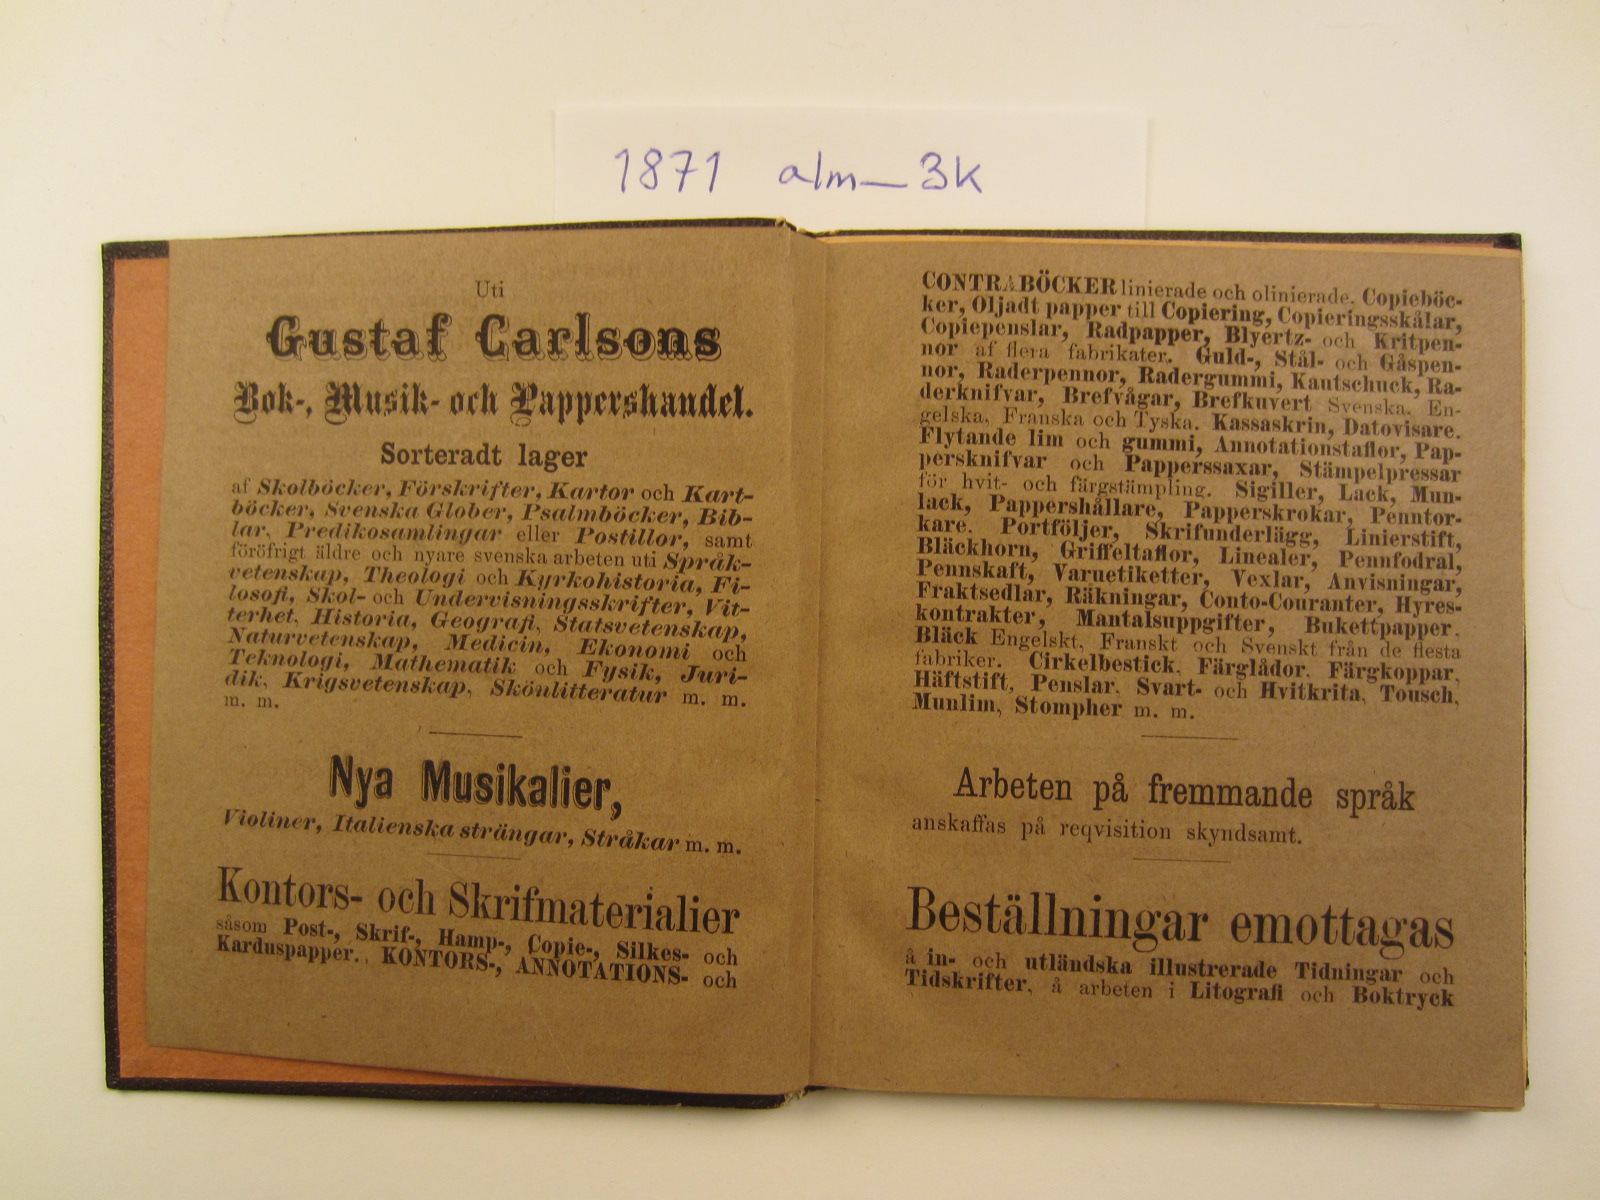 1871 alm_3K
Uti
Gustaf Carlsons
Bok-, Musik- och Pappershandel.
Sorteradt lager
af Skolböcker, Förskrifter, Kartor och Kart-
böcker, Svenska Glober, Psalmböcker, Bib-
lar, Predikosamlingar eller Postillor, samt
föröfrigt äldre och nyare svenska arbeten uti Språk-
vetenskap, Theologi och Kyrkohistoria, Fi-
losofi, Skol- och Undervisningsskrifter, Vit-
terhet, Historia, Geografi, Statsvetenskap,
Naturvetenskap, Medicin, Ekonomi och
Teknologi, Mathematik och Fysik, Juri-
dik, Krigsvetenskap, Skönlitteratur m. m.
m. m.
Nya Musikalier,
Violiner, Italienska strängar, Stråkar m. m.
Kontors- och Skrifmaterialier
såsom Post-, Skrif-, Hamp-, Copie-, Silkes- och
Karduspapper. KONTORS-, ANNOTATIONS- och
CONTRABÖCKER linierade och olinierade. Copieböc-
ker, Oljadt papper till Copiering, Copieringsskålar,
Copiepenslar, Radpapper, Blyertz- och Kritpen-
nor af flera fabrikater. Guld-, Stål- och Gåspen-
nor, Raderpennor, Radergummi, Kautschuck, Ra-
derknifvar, Brefvågar, Brefkuvert Svenska. En-
gelska, Franska och Tyska. Kassaskrin, Datovisare.
Flytande lim och gummi, Annotationstaflor, Pap-
persknifvar och Papperssaxar, Stämpelpressar
för hvit- och färgstämpling. Sigiller, Lack, Mun-
lack, Pappershållare, Papperskrokar, Penntor-
kare. Portföljer, Skrifunderlägg, Linierstift,
Bläckhorn, Griffeltaflor, Linealer, Pennfodral,
Pennskaft, Varuetiketter, Vexlar, Anvisningar,
Fraktsedlar, Räkningar, Conto-Couranter, Hyres-
kontrakter, Mantalsuppgifter, Bukettpapper.
Bläck Engelskt, Franskt och Svenskt från de flesta
fabriker. Cirkelbestick, Färglådor. Färgkoppar,
Häftstift, Penslar. Svart- och Hvitkrita, Tousch,
Munlim, Stompher m. m.
Arbeten på fremmande språk
anskaffas på reqvisition skyndsamt.
Beställningar emottagas
å in- och utländska illustrerade Tidningar och
Tidskrifter, å arbeten i Litografi och Boktryck